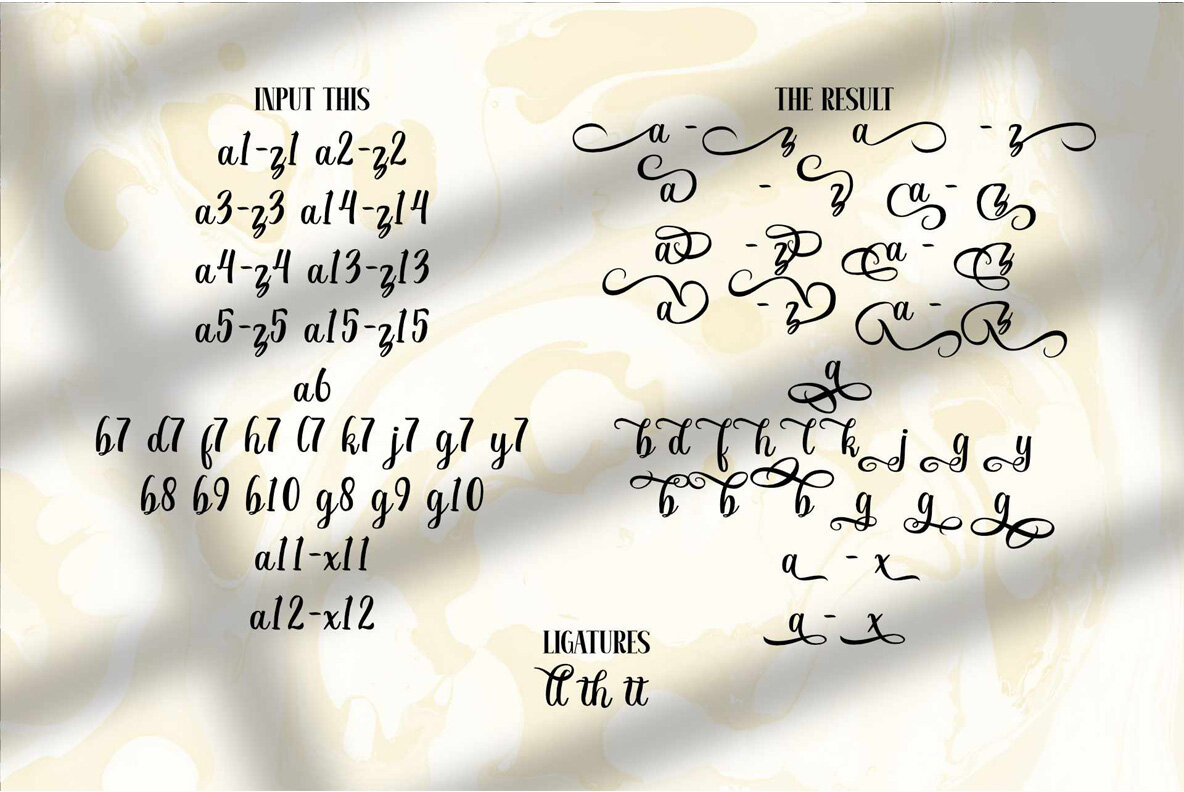 INPUT THIS
a1-z1 a2-z2
a3-z3 a14-z14
a4-z4 a13-z13
a5-z5 a15-z15
a6
b7 d7 f7 h7 l7 k7 j7 g7 y7
b8 b9 b10 g8 g9 g10
a11-x11
a12-x12
THE RESULT
a - z a - z
a - z a - z
a - z a - z
a - z a - z
a
b d f h l k j g y
b b b g g g
a - x
a - x
LIGATURES
ll th tt